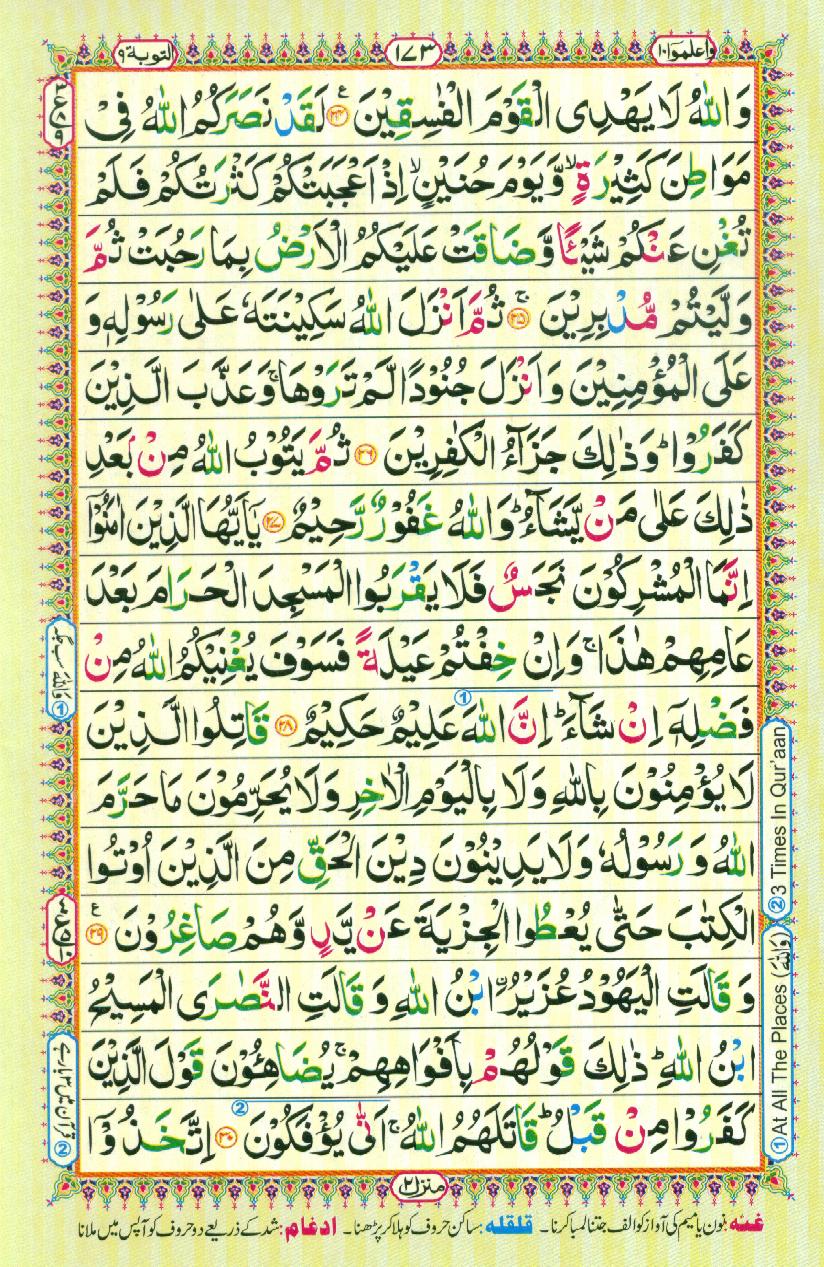 واعلموا ١٠
١٧٣
التوبة ٩
وَاللّٰهُ لَا يَهْدِى الْقَوْمَ الْفٰسِقِيْنَ ﴿٢٤﴾ لَقَدْ نَصَرَكُمُ اللّٰهُ فِىْ
مَوَاطِنَ كَثِيْرَةٍ ۙ وَّيَوْمَ حُنَيْنٍ ۙ اِذْ اَعْجَبَتْكُمْ كَثْرَتُكُمْ فَلَمْ
تُغْنِ عَنْكُمْ شَيْـًٔا وَّضَاقَتْ عَلَيْكُمُ الْاَرْضُ بِمَا رَحُبَتْ ثُمَّ
وَلَّيْتُمْ مُّدْبِرِيْنَ ۚ ﴿٢٥﴾ ثُمَّ اَنْزَلَ اللّٰهُ سَكِيْنَتَهٗ عَلٰى رَسُوْلِهٖ وَ
عَلَى الْمُؤْمِنِيْنَ وَاَنْزَلَ جُنُوْدًا لَّمْ تَرَوْهَا ۚ وَعَذَّبَ الَّذِيْنَ
كَفَرُوْا ؕ وَذٰلِكَ جَزَآءُ الْكٰفِرِيْنَ ﴿٢٦﴾ ثُمَّ يَتُوْبُ اللّٰهُ مِنْۢ بَعْدِ
ذٰلِكَ عَلٰى مَنْ يَّشَآءُ ؕ وَاللّٰهُ غَفُوْرٌ رَّحِيْمٌ ﴿٢٧﴾ يٰۤاَيُّهَا الَّذِيْنَ اٰمَنُوْۤا
اِنَّمَا الْمُشْرِكُوْنَ نَجَسٌ فَلَا يَقْرَبُوا الْمَسْجِدَ الْحَرَامَ بَعْدَ
عَامِهِمْ هٰذَا ۚ وَاِنْ خِفْتُمْ عَيْلَةً فَسَوْفَ يُغْنِيْكُمُ اللّٰهُ مِنْ
فَضْلِهٖۤ اِنْ شَآءَ ؕ اِنَّ اللّٰهَ عَلِيْمٌ حَكِيْمٌ ﴿٢٨﴾ قَاتِلُوا الَّذِيْنَ
لَا يُؤْمِنُوْنَ بِاللّٰهِ وَلَا بِالْيَوْمِ الْاٰخِرِ وَلَا يُحَرِّمُوْنَ مَا حَرَّمَ
اللّٰهُ وَرَسُوْلُهٗ وَلَا يَدِيْنُوْنَ دِيْنَ الْحَقِّ مِنَ الَّذِيْنَ اُوْتُوا
الْكِتٰبَ حَتّٰى يُعْطُوا الْجِزْيَةَ عَنْ يَّدٍ وَّهُمْ صَاغِرُوْنَ ﴿٢٩﴾
وَقَالَتِ الْيَهُوْدُ عُزَيْرُ ۨابْنُ اللّٰهِ وَقَالَتِ النَّصٰرَى الْمَسِيْحُ
ابْنُ اللّٰهِ ؕ ذٰلِكَ قَوْلُهُمْ بِاَفْوَاهِهِمْ ۚ يُضَاهِـُٔوْنَ قَوْلَ الَّذِيْنَ
كَفَرُوْا مِنْ قَبْلُ ؕ قَاتَلَهُمُ اللّٰهُ ۚ اَنّٰى يُؤْفَكُوْنَ ﴿٣٠﴾ اِتَّخَذُوْۤا
منزل ٢
② 3 Times In Qur'aan
① At All The Places (وَاللّٰهُ)
غنه: نون یا میم کی آواز کو الف جتنا لمبا کرنا۔ قلقله: ساکن حروف کو ہلا کر پڑھنا۔ ادغام: شد کے ذریعے دو حروف کو آپس میں ملانا